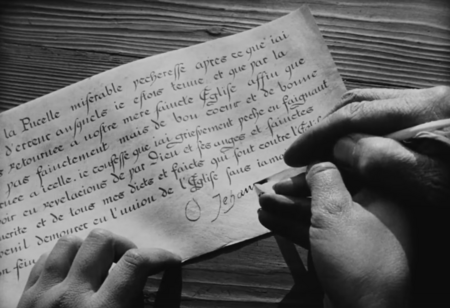 la Pucelle miserable pecheresse apres ce que iai
d'erreur ie estois tenue et que par la
retournee a nostre mere saincte Eglise affin que
pas fainctement mais de bon coeur et de bonne
a icelle. ie confesse que iai griefvement peche en faignant
oir eu revelacions de par Dieu et ses anges et sainctes
et de tous mes dicts et faicts qui sont contre
demourer en l'union de l'Eglise sans iama
O Jehan